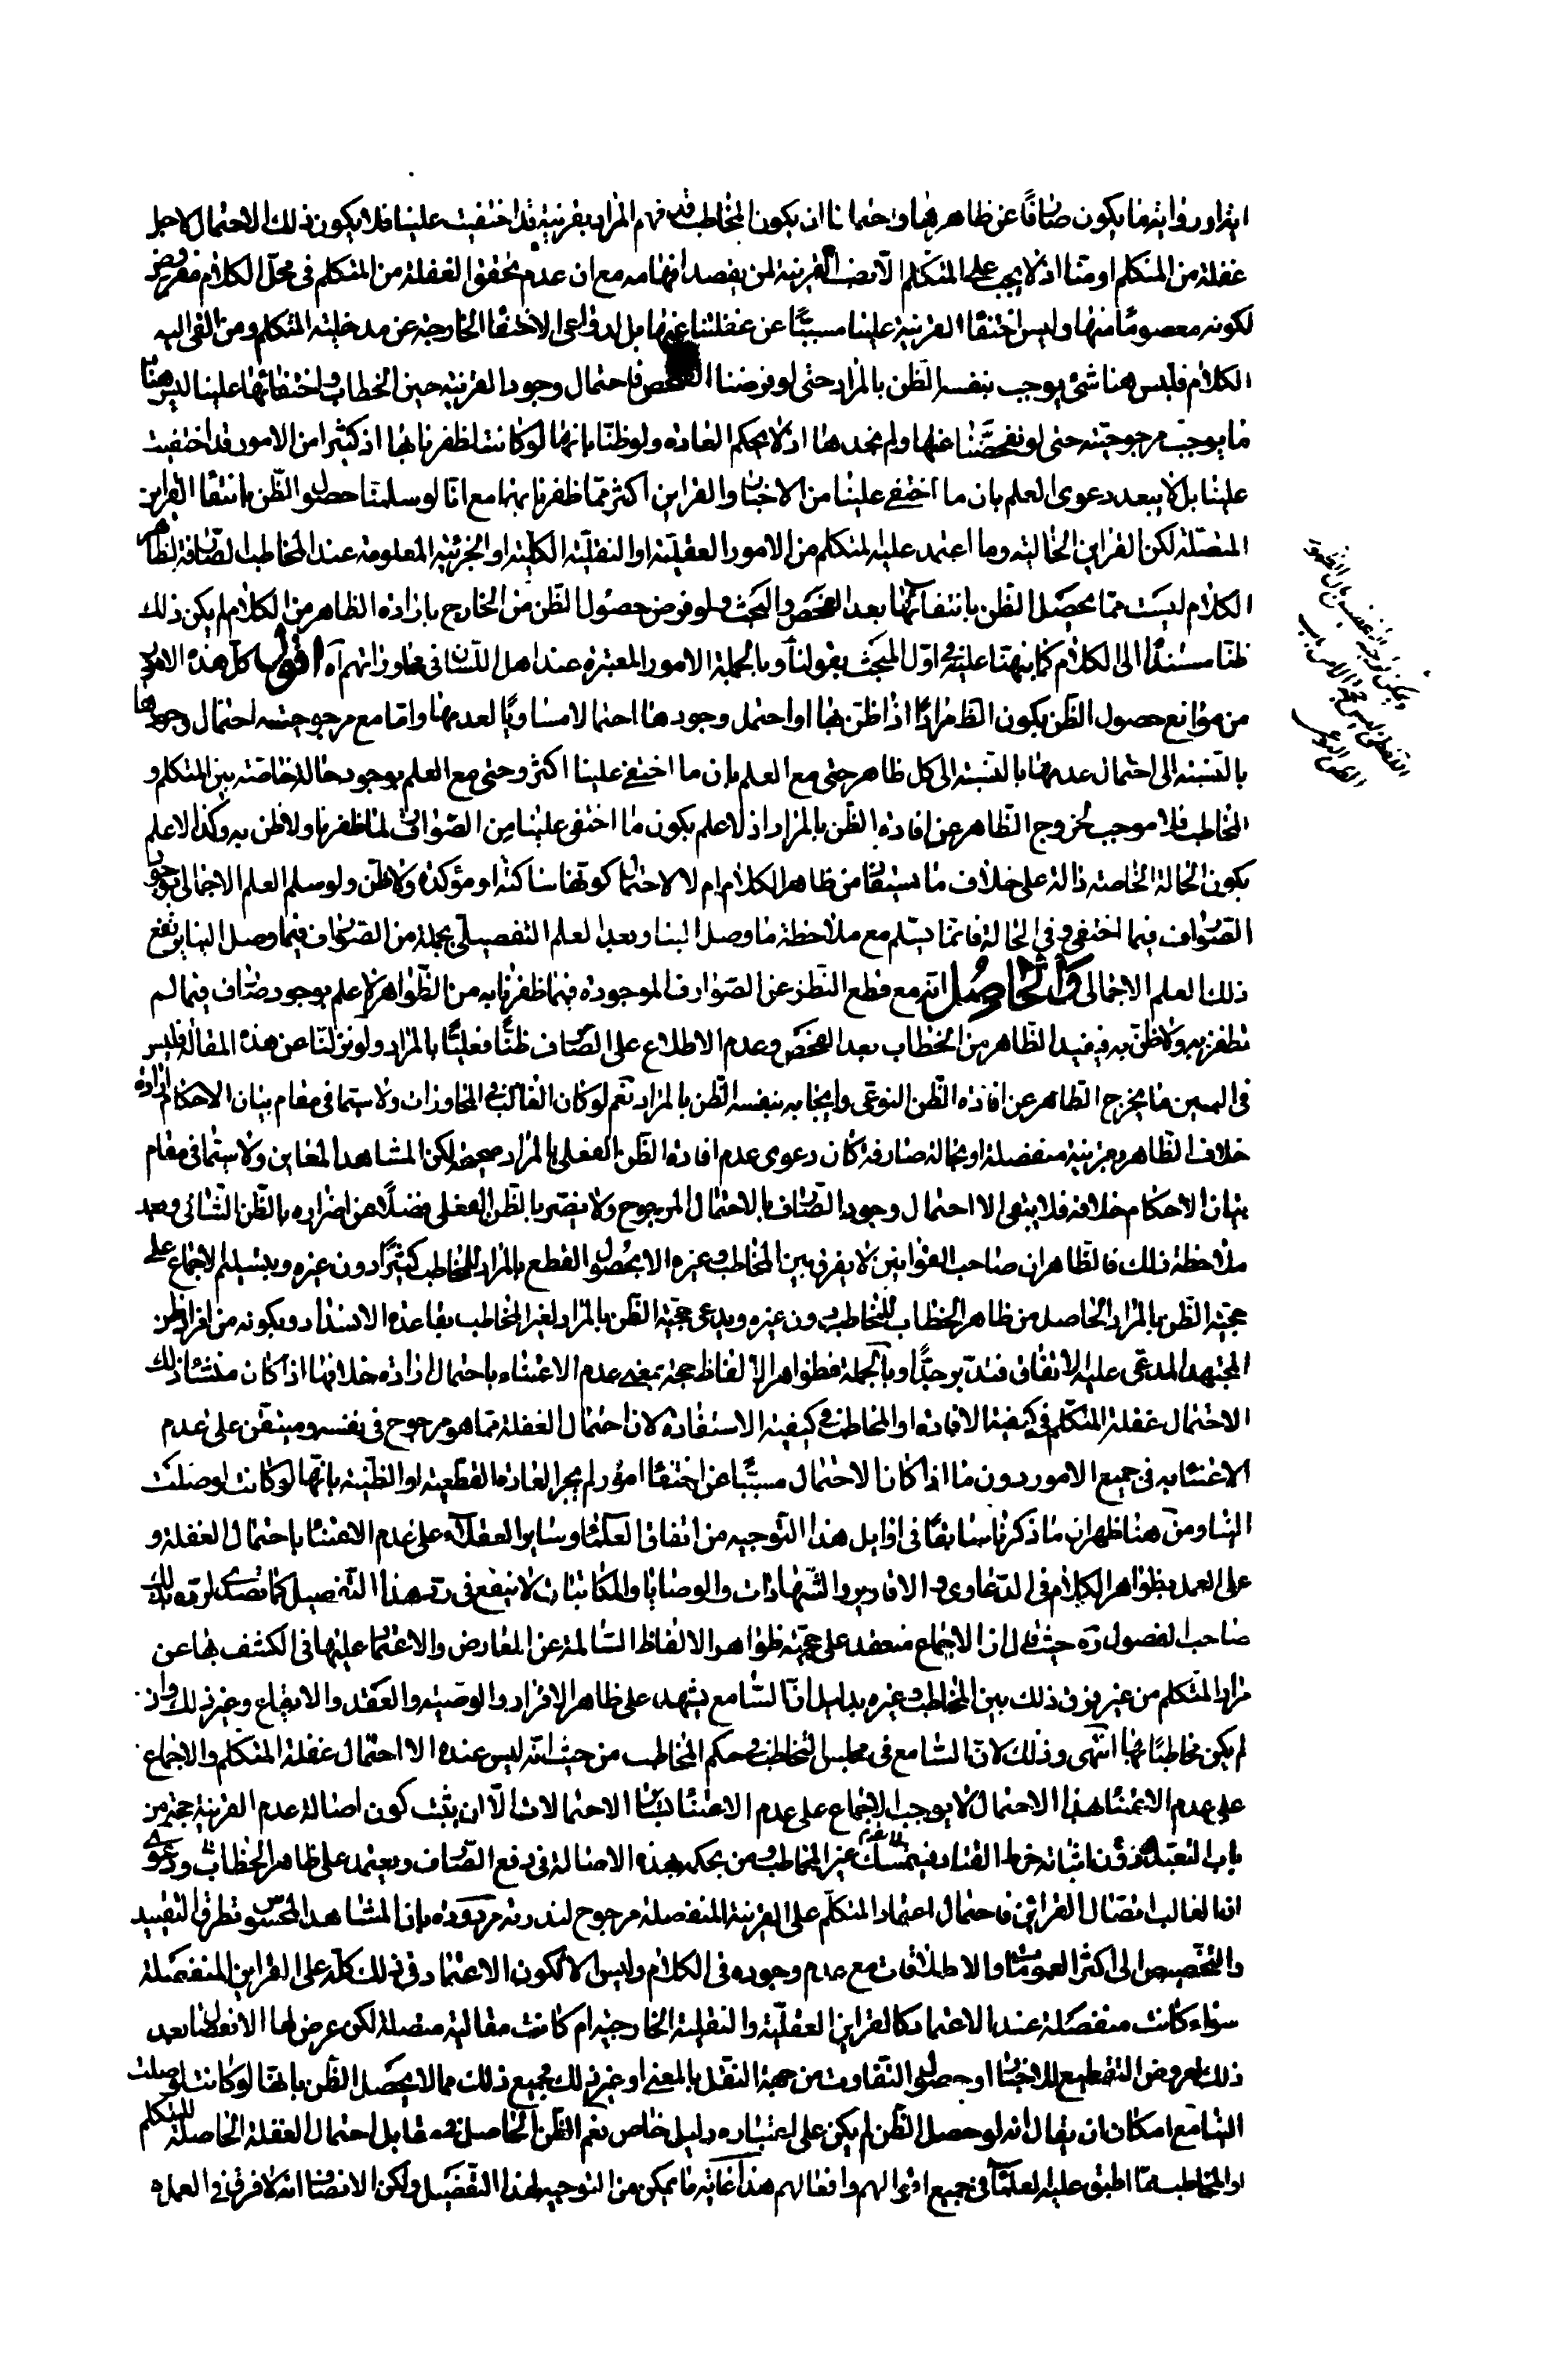 ان يكون المخاطب قد فهم المراد بقرينة قد اختفيت علينا فلا يكون ذلك الاحتمال لاجل
غفلة من المتكلم او منا اذ لا يجب على المتكلم الا نصب القرينة لمن يقصد افهامه مع ان عدم تحقق الغفلة من المتكلم فى محل الكلام مفروض
لكونه معصومًا منها وليس اختفاء القرينة علينا مسببًا عن غفلتنا عنها بل لدواعى الاختفاء الخارجة عن مدخلية المتكلم ومن القى اليه
الكلام فليس هنا شئ يوجب بنفسه الظن بالمراد حتى لو فرضنا الفحص فاحتمال وجود القرينة حين الخطاب واختفائها علينا ليس هنا
ما يوجب مرجوحيته حتى لو تفحصنا عنها ولم نجدها اذ لا يحكم العادة ولو ظنا بانها لو كانت لظفرنا بها اذ كثيرا من الامور قد اختفيت
علينا بل لا يبعد دعوى العلم بان ما اختفى علينا من الاخبار والقراين اكثر مما ظفرنا بها مع انا لو سلمنا حصول الظن بانتفاء القراين
المتصلة لكن القراين الحالية وما اعتمد عليه المتكلم من الامور العقلية او النقلية الكلية او الجزئية المعلومة عند المخاطب الصارفة لظاهر
الكلام ليست مما يحصل الظن بانتفائها بعد الفحص والبحث ولو فرض حصول الظن من الخارج بارادة الظاهر من الكلام لم يكن ذلك
ظنا مستندًا الى الكلام كما نبهنا عليه فى اول المبحث بقولنا وبالجملة الامور المعتبرة عند اهل اللسان فى محاوراتهم آه اقول كل هذه الامور
من موانع حصول الظن بكون الظ مرادًا اذا ظن بها او احتمل وجودها احتمالا مساويًا لعدمها واما مع مرجوحية احتمال وجودها
بالنسبة الى احتمال عدمها بالنسبة الى كل ظاهر حتى مع العلم بان ما اختفى علينا اكثر وحتى مع العلم بوجود حالة خاصة بين المتكلم و
المخاطب فلا موجب لخروج الظاهر عن افادة الظن بالمراد اذ لا علم بكون ما اختفى علينا من الصوارف لما ظفرنا ولا ظن به وكذا لا علم
بكون الحالة الخاصة دالة على خلاف ما يستفاد من ظاهر الكلام ام لا لاحتمال كونها ساكتة او مؤكدة ولا ظن ولو سلم العلم الاجمالى بوجود
الصوارف فيما اختفى وفى الحالة فانما يسلم مع ملاحظة ما وصل الينا وبعد العلم التفصيلى بجملة من الصوارف فيما وصل الينا يرتفع
ذلك العلم الاجمالى والحاصل انه مع قطع النظر عن الصوارف الموجودة فيما ظفرنا به من الظواهر لا علم بوجود صارف فيما لم
نظفر به ولا ظن به فيفيد الظاهر من الخطاب بعد الفحص وعدم الاطلاع على الصارف ظنًا فعليًا بالمراد ولو نزلنا عن هذه المقالة فليس
فى البين ما يخرج الظاهر عن افادة الظن النوعى وايجابه بنفسه الظن بالمراد نعم لو كان الغالب فى المحاورات ولا سيما فى مقام بيان الاحكام ارادة
خلاف الظاهر بقرينة منفصلة او بحالة صارفة كان دعوى عدم افادة الظن الفعلى بالمراد صحيحة لكن المشاهد المعاين ولا سيما فى مقام
بيان الاحكام خلافه فلا يبقى الا احتمال وجود الصارف بالاحتمال المرجوح ولا يضر بالظن الفعلى فضلًا عن اضراره بالظن الشأنى وبعد
ملاحظة ذلك فالظاهر ان صاحب القوانين لا يفرق بين المخاطب وغيره الا بحصول القطع بالمراد للمخاطب كثيرًا دون غيره وبتسليم الاجماع على
حجية الظن بالمراد الحاصل من ظاهر الخطاب للمخاطب دون غيره ويدعى حجية الظن بالمراد لغير المخاطب بقاعدة الانسداد وبكونه من افراد ظن
المجتهد المدعى عليه الاتفاق فتدبر جدًا وبالجملة فظواهر الالفاظ حجة بمعنى عدم الاعتناء باحتمال ارادة خلافها اذا كان منشأ ذلك
الاحتمال غفلة المتكلم فى كيفية الافادة او المخاطب فى كيفية الاستفادة لان احتمال الغفلة مما هو مرجوح فى نفسه ومتفق على عدم
الاعتناء به فى جميع الامور دون ما اذا كان الاحتمال مسببًا عن اختفاء امور لم يجر العادة القطعية او الظنية بانها لو كانت لوصلت
الينا ومن هنا ظهر ان ما ذكرنا سابقًا فى اوايل هذا التوجيه من اتفاق العلماء وساير العقلاء على عدم الاعتناء باحتمال الغفلة و
على العمل بظواهر الكلام فى الدعاوى والاقارير والشهادات والوصايا والمكاتبات لا ينفع فى رد هذا التفصيل كما تصدى لرده بذلك
صاحب الفصول ره حيث قال ان الاجماع منعقد على حجية ظواهر الالفاظ السالمة عن المعارض والاعتماد عليها فى الكشف بها عن
مراد المتكلم من غير فرق فى ذلك بين المخاطب وغيره بدليل ان السامع يشهد على ظاهر الاقرار والوصية والعقد والايقاع وغير ذلك وان
لم يكن مخاطبًا بها انتهى وذلك لان السامع فى مجلس التخاطب فى حكم المخاطب من حيث انه ليس عنده الا احتمال غفلة المتكلم والاجماع
على عدم الاعتناء بهذا الاحتمال لا يوجب الاجماع على عدم الاعتناء بساير الاحتمالات الا ان يثبت كون اصالة عدم القرينة حجة من
باب التعبد ودون اثباته خرط القتاد فيتمسك غير المخاطب ومن بحكمه بهذه الاصالة فى دفع الصارف ويعتمد على ظاهر الخطاب ودعوى
ان الغالب اتصال القراين فاحتمال اعتماد المتكلم على القرينة المنفصلة مرجوح لندرته مردودة بان المشاهد المحسوس تطرق التقييد
والتخصيص الى اكثر العمومات والاطلاقات مع عدم وجوده فى الكلام وليس الا لكون الاعتماد فى ذلك كله على القراين المنفصلة
سواء كانت منفصلة عند الاعتماد كالقراين العقلية والنقلية الخارجية ام كانت مقالية متصلة لكن عرض لها الانفصال بعد
ذلك لعروض التقطيع للاخبار او حصول التفاوت من جهة النقل بالمعنى او غير ذلك فجميع ذلك مما لا يحصل الظن بانها لو كانت لوصلت
الينا مع امكان ان يقال انه لو حصل الظن لم يكن على اعتباره دليل خاص نعم الظن الحاصل فى مقابل احتمال الغفلة الحاصلة للمتكلم
او المخاطب مما اطبق عليه العلماء فى جميع اقوالهم وافعالهم هذا غاية ما يمكن من التوجيه لهذا التفصيل ولكن الانصاف انه لا فرق فى العمل